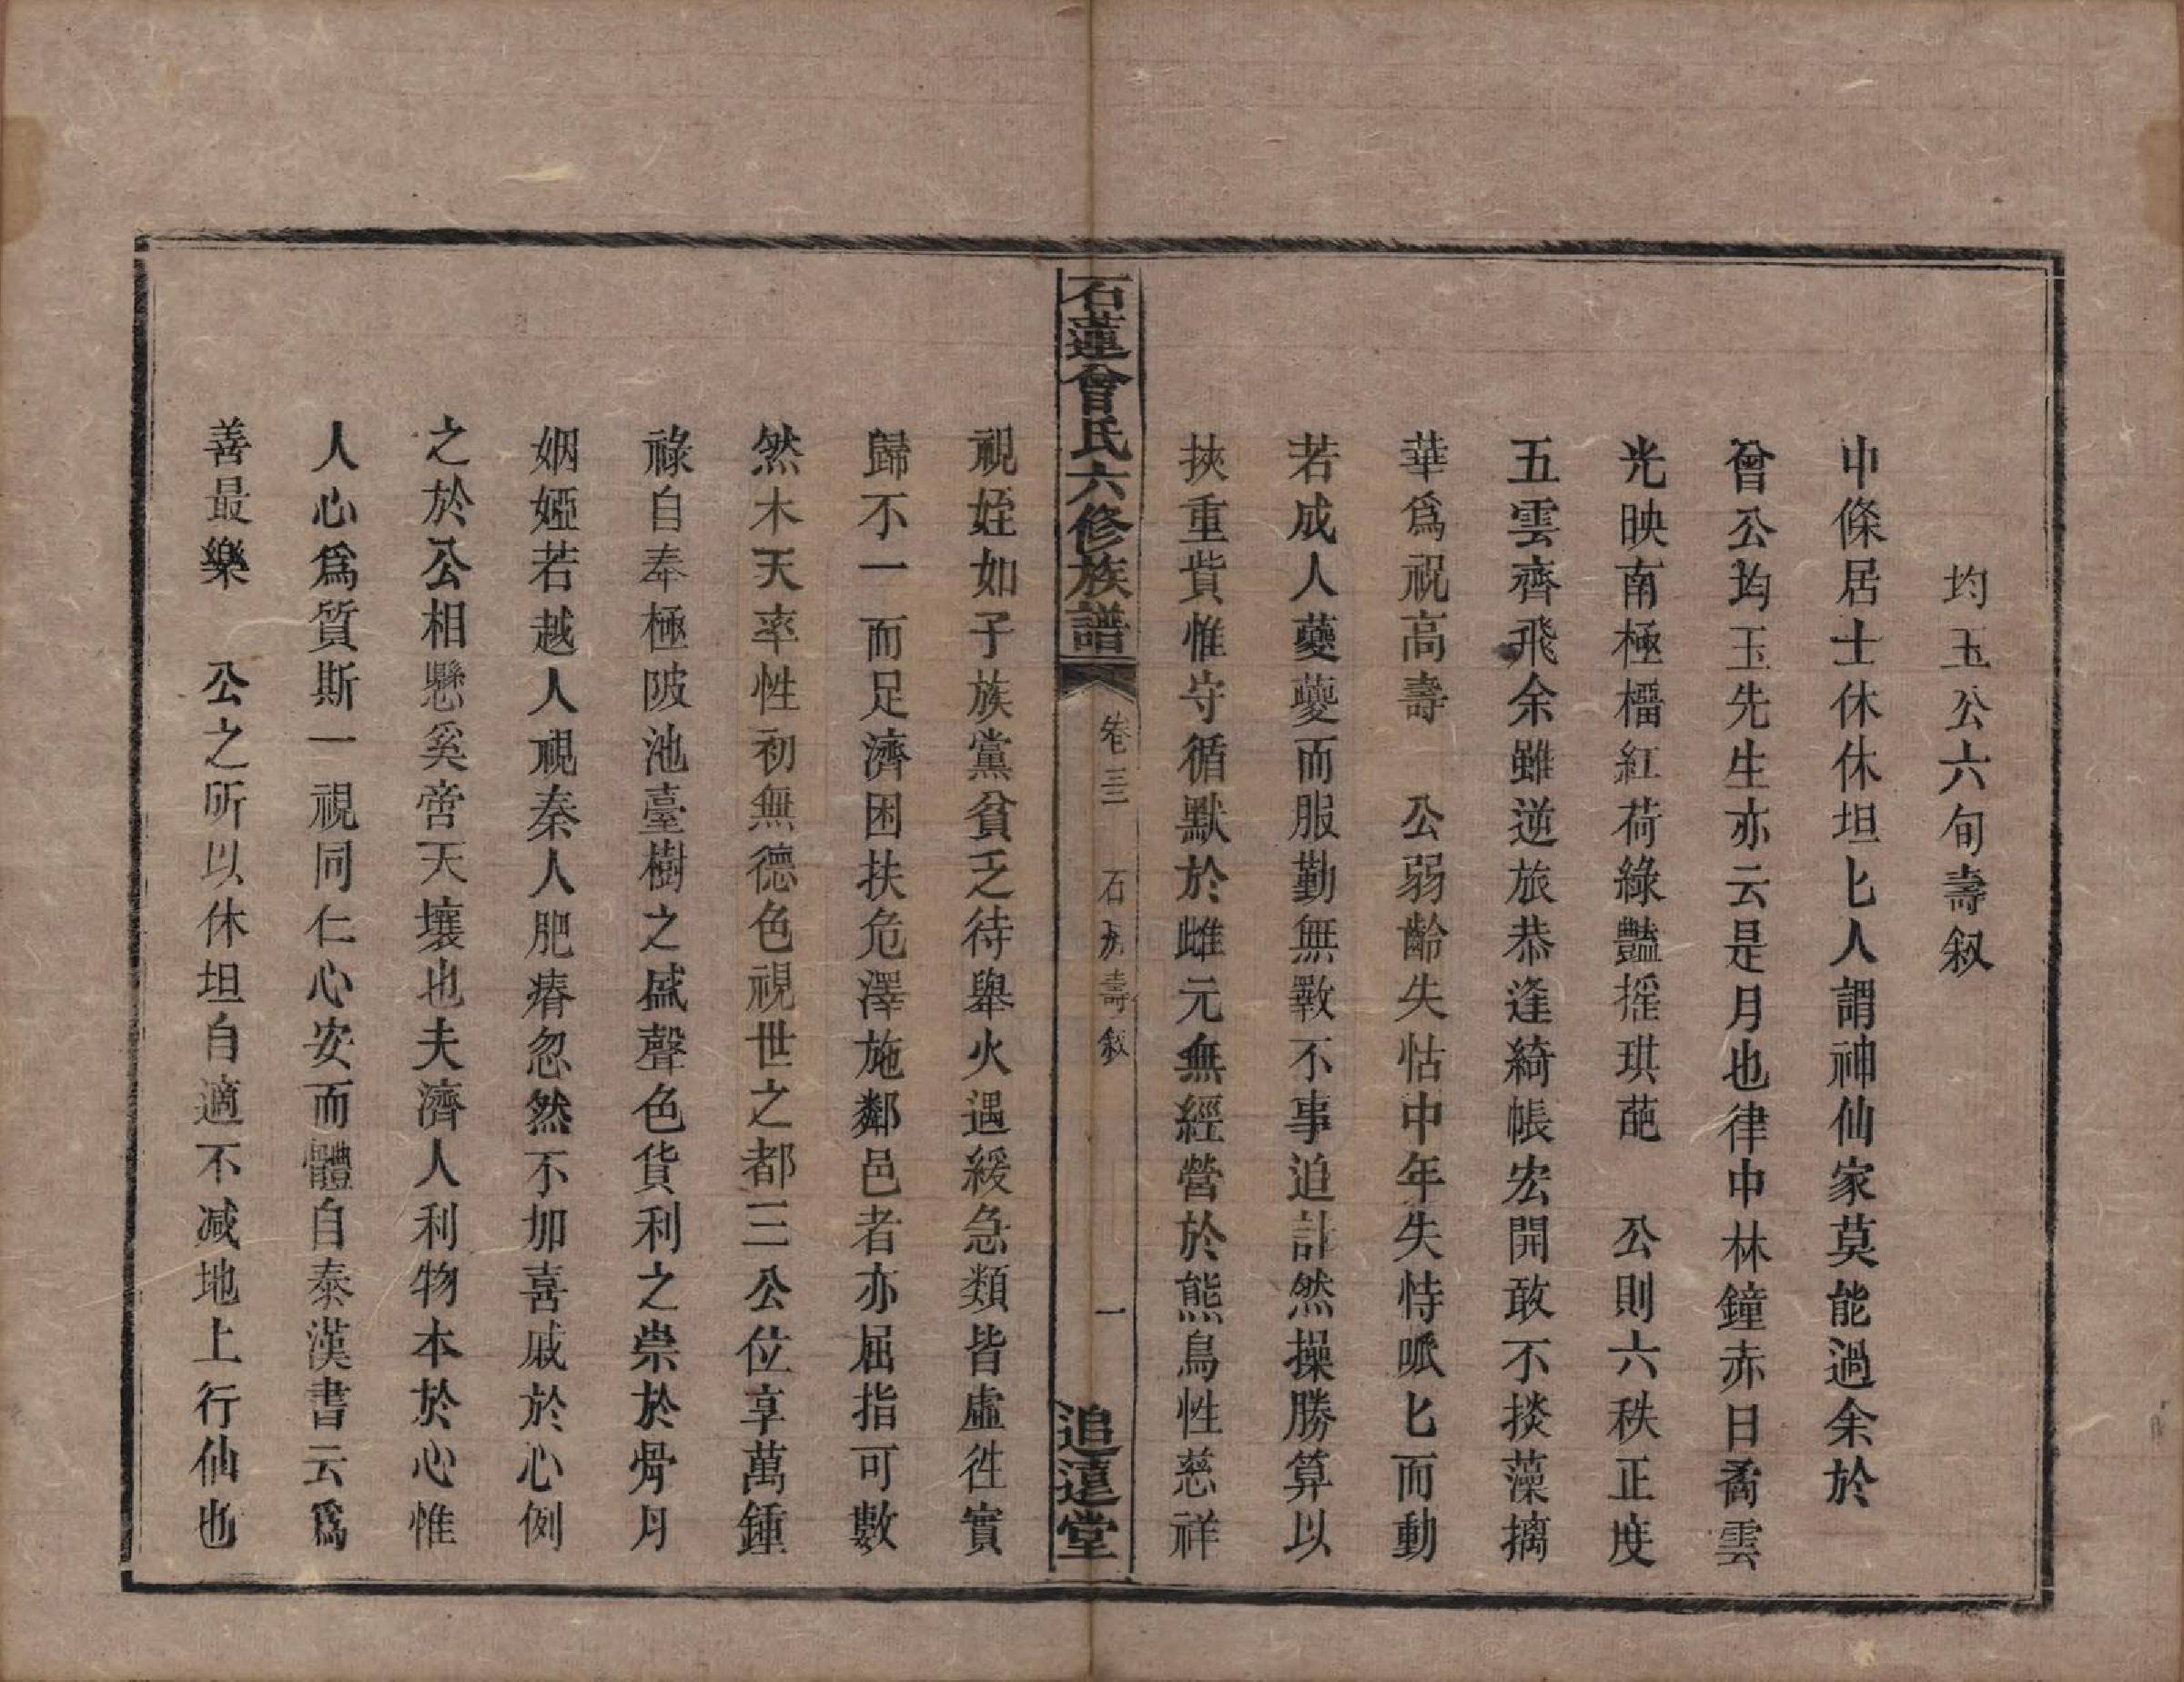 均玉公六旬壽叙
中條居士休休坦匕人謂神仙家莫能過余於
曾公均玉先生亦云是月也律中林鐘赤日矞雲
光映南極榴紅荷綠豔摇琪葩　公則六秩正度
五雲齊飛余雖逆旅恭逢綺帳宏開敢不掞藻摛
華爲祝高壽　公弱齡失怙中年失恃哌匕而動
若成人虁虁而服勤無斁不事迫計然操勝算以
挾重貲惟守循默於雌元無經營於熊鳥性慈祥
石蓮曾氏六修族譜　卷三　石　壽叙　一　追遠堂
視姪如子族黨貧乏待舉火遇緩急類皆虛徃實
歸不一而足濟困扶危澤施鄰邑者亦屈指可數
然木天率性初無德色視世之都三公位享萬鍾
祿自奉極陂池臺樹之盛聲色貨利之祟於骨月
姻婭若越人視秦人肥瘠忽然不加喜戚於心例
之於公相懸奚啻天壤也夫濟人利物本於心惟
人心爲質斯一視同仁心安而體自泰漢書云爲
善最樂　公之所以休坦自適不减地上行仙也